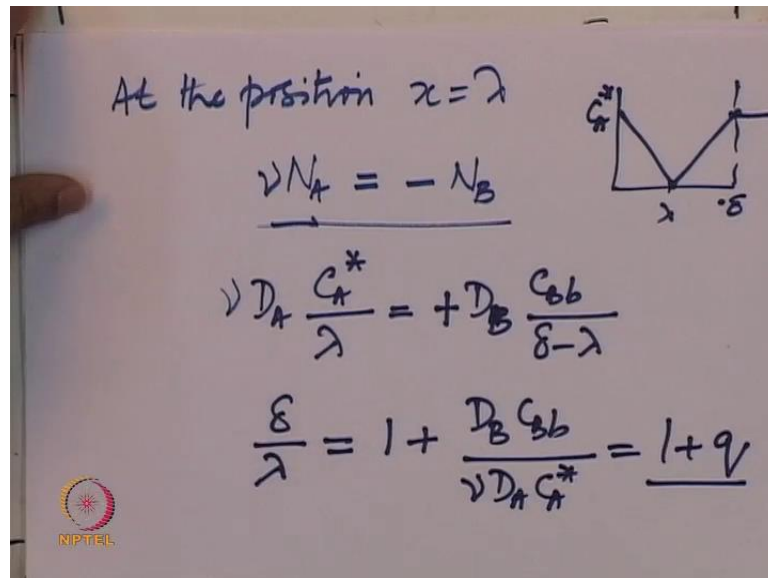 At the position x = λ
C_A^*
λ δ
νN_A = - N_B
νD_A C_A^*/λ = + D_B C_Bb/(δ-λ)
δ/λ = 1 + D_B C_Bb/(νD_A C_A^*) = 1+q
NPTEL